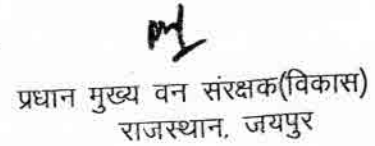 प्रधान मुख्य वन संरक्षक(विकास)
राजस्थान, जयपुर